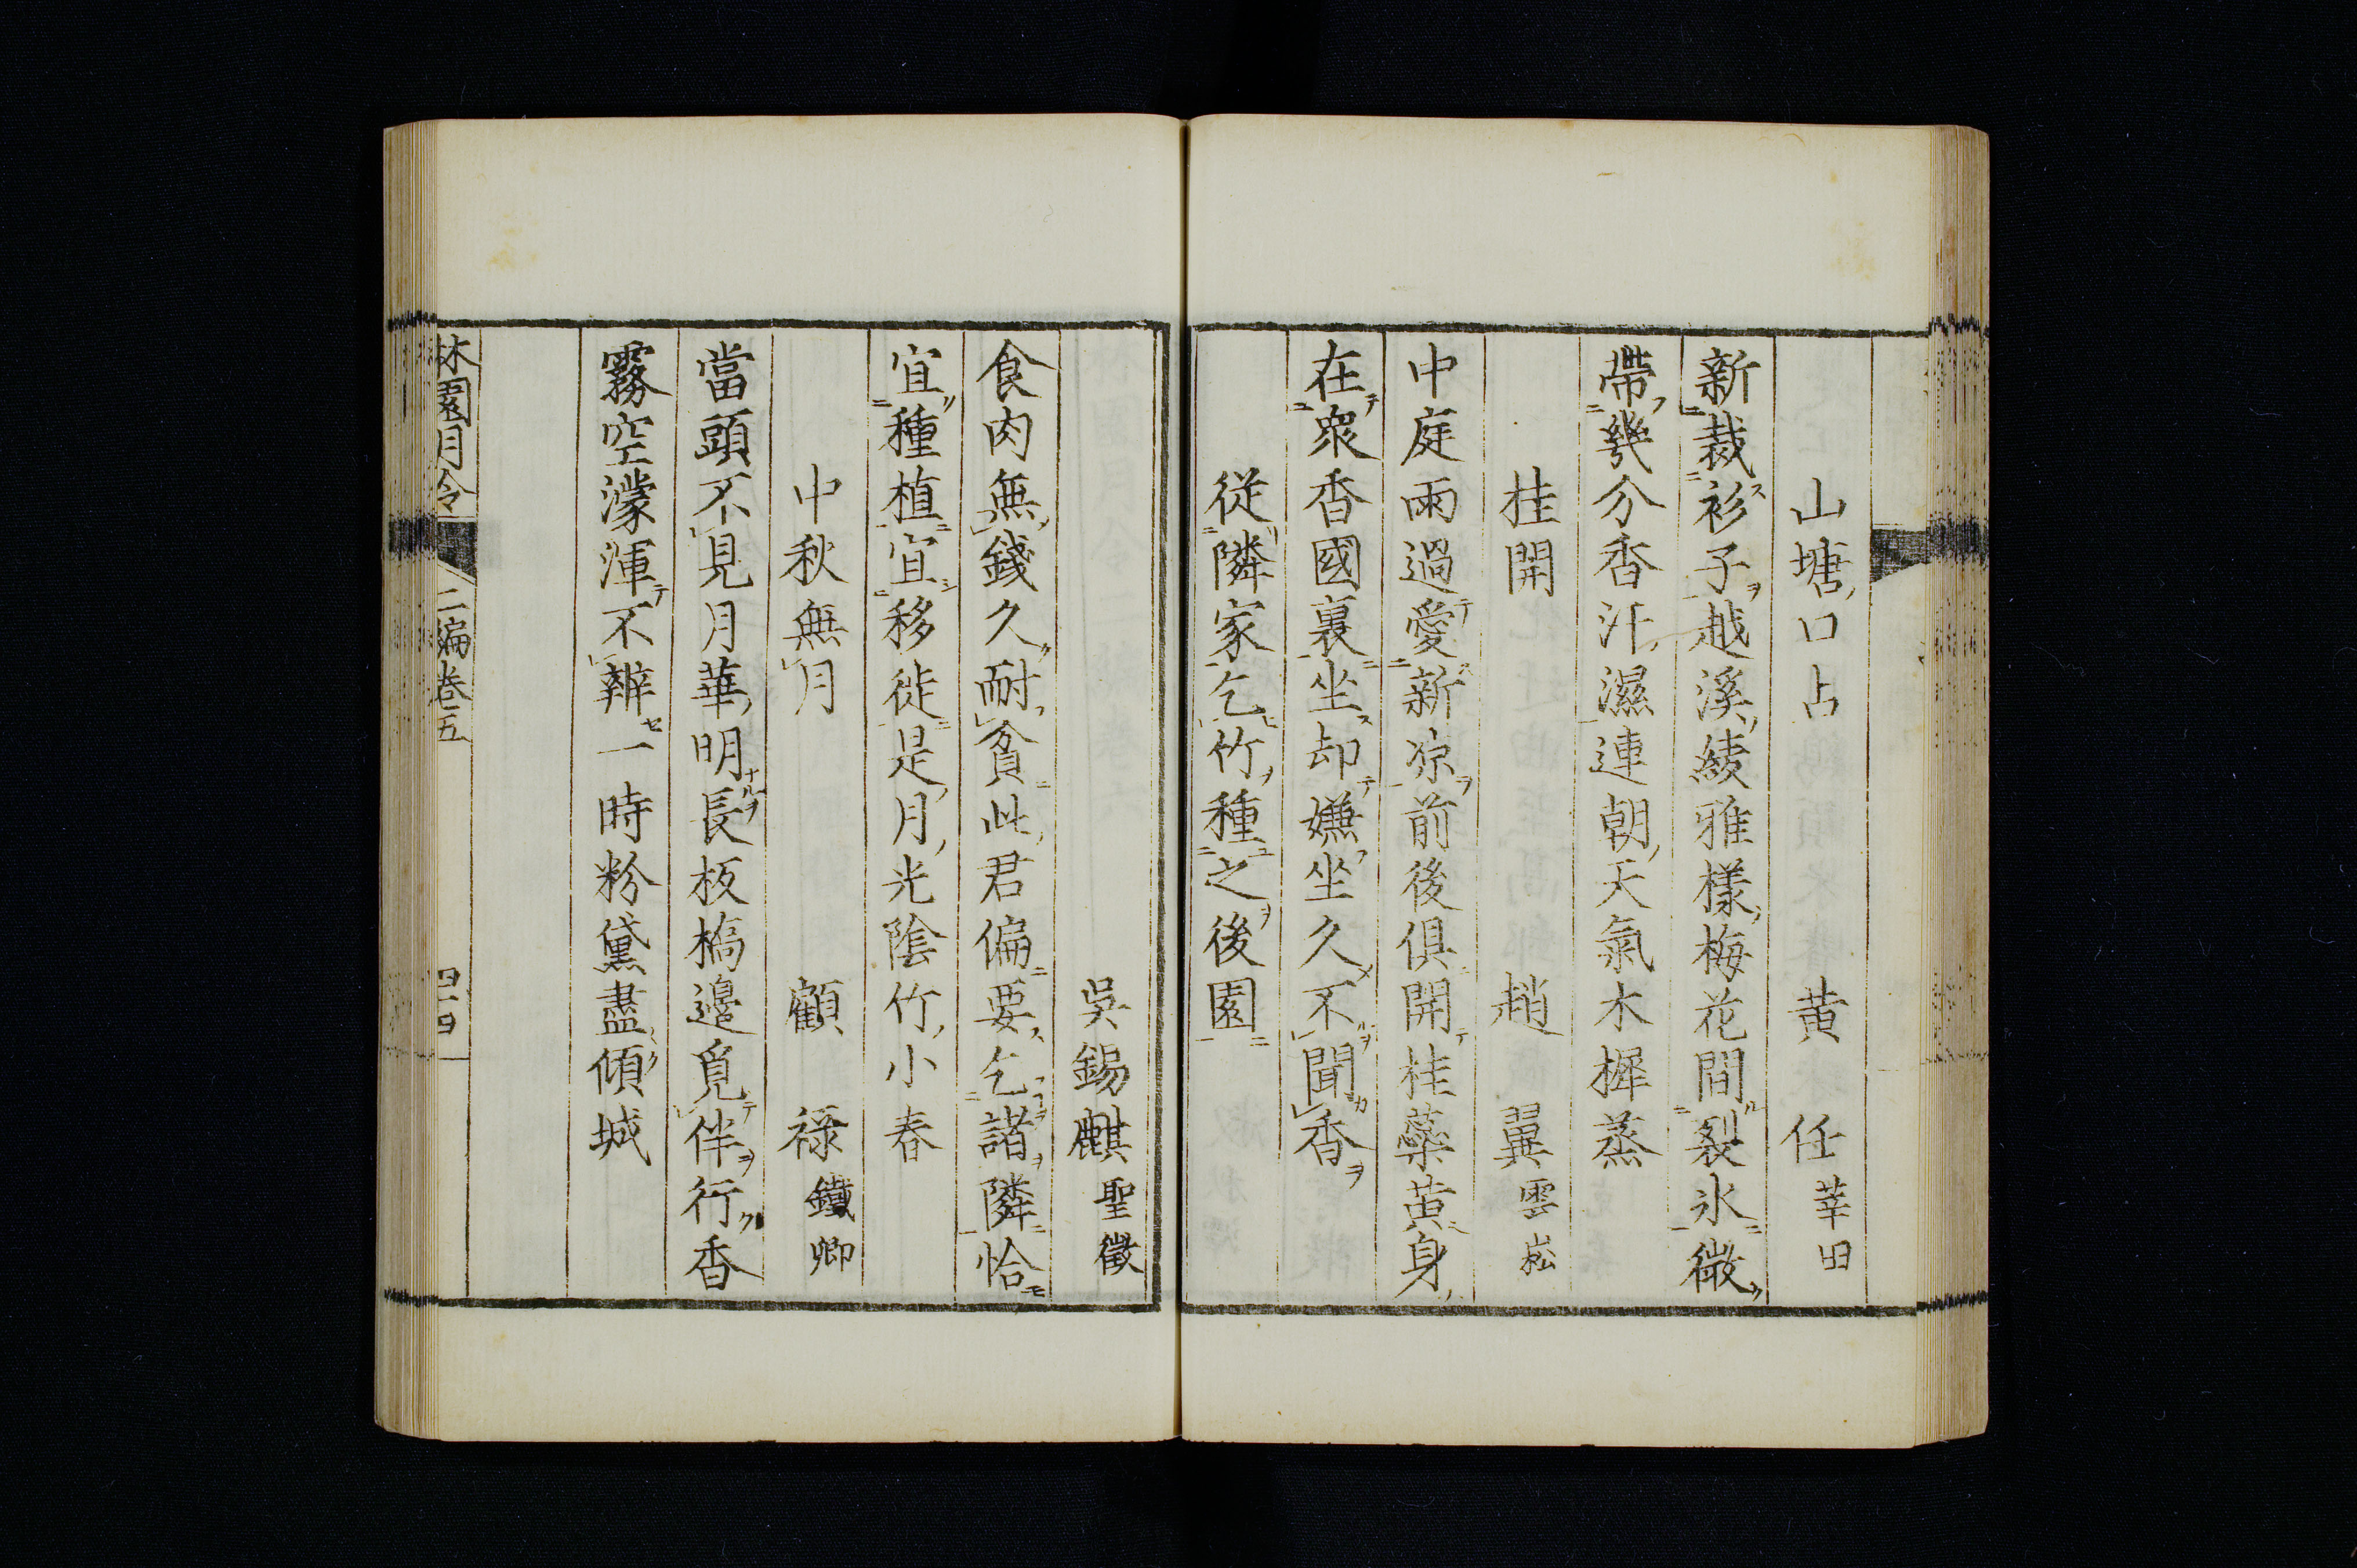 山塘口占 黄任莘田
新裁衫子越溪綾雅樣梅花間裂氷微
帶幾分香汁濕連朝天氣木樨蒸
桂開 趙翼雲崧
中庭雨過愛新凉前後俱開桂蘂黄身
在衆香國裏坐却嫌坐久不聞香
従隣家乞竹種之後園
吳錫麒聖徴
食肉無錢久耐貧此君偏要乞諸隣恰
宜種植宜移徙是月光陰竹小春
中秋無月 顧祿鐵卿
當頭不見月華明長板橋邊覓伴行香
霧空濛渾不辨一時粉黛盡傾城
林園月令 二編卷五 四十四